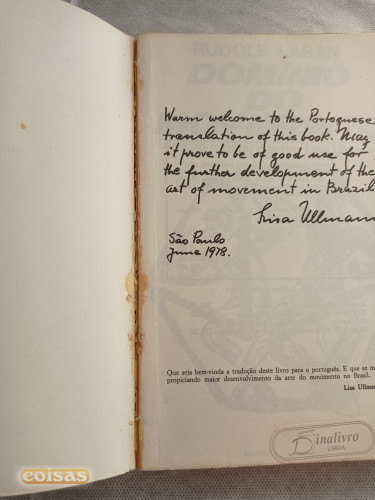 RUDOLF LABAN
DOMÍNIO
Warm welcome to the Portoguese
translation of this book. May
it prove to be of good use for
the further development of the
art of movement in Brazil
Lisa Ullmann
São Paulo
June 1978.
Que seja bem-vinda a tradução deste livro para o português. E que se m
propiciando maior desenvolvimento da arte do movimento no Brasil.
Lisa Ullma
Dinalivro
LISBOA
coisas